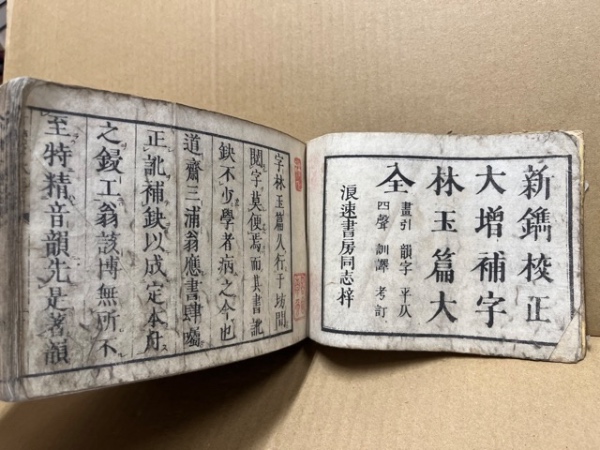 新鐫校正
大増補字
林玉篇大
全
畫引 韻字 平仄
四聲 訓譯 考訂
浪速書房同志梓
字林玉篇久行于坊間
閲字莫便焉而其書訛
鈌不少學者病之今也
道齋三浦翁應書肆囑
正訛補鈌以成定本付
之鋟工翁該博無所不
至特精音韻先是著韻